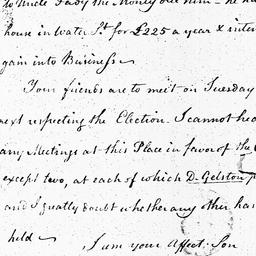 to Uncle Fady the Money due him – he ha
house in Water St. for £225 a year & inten
gain into Business
Your friends are to meet on Tuesday
next respecting the Election. I cannot hea
any Meetings at this Place in favor of the
except two, at each of which D. Gelston p
and I greatly doubt whether any other has
held –
I am your Affect. Son